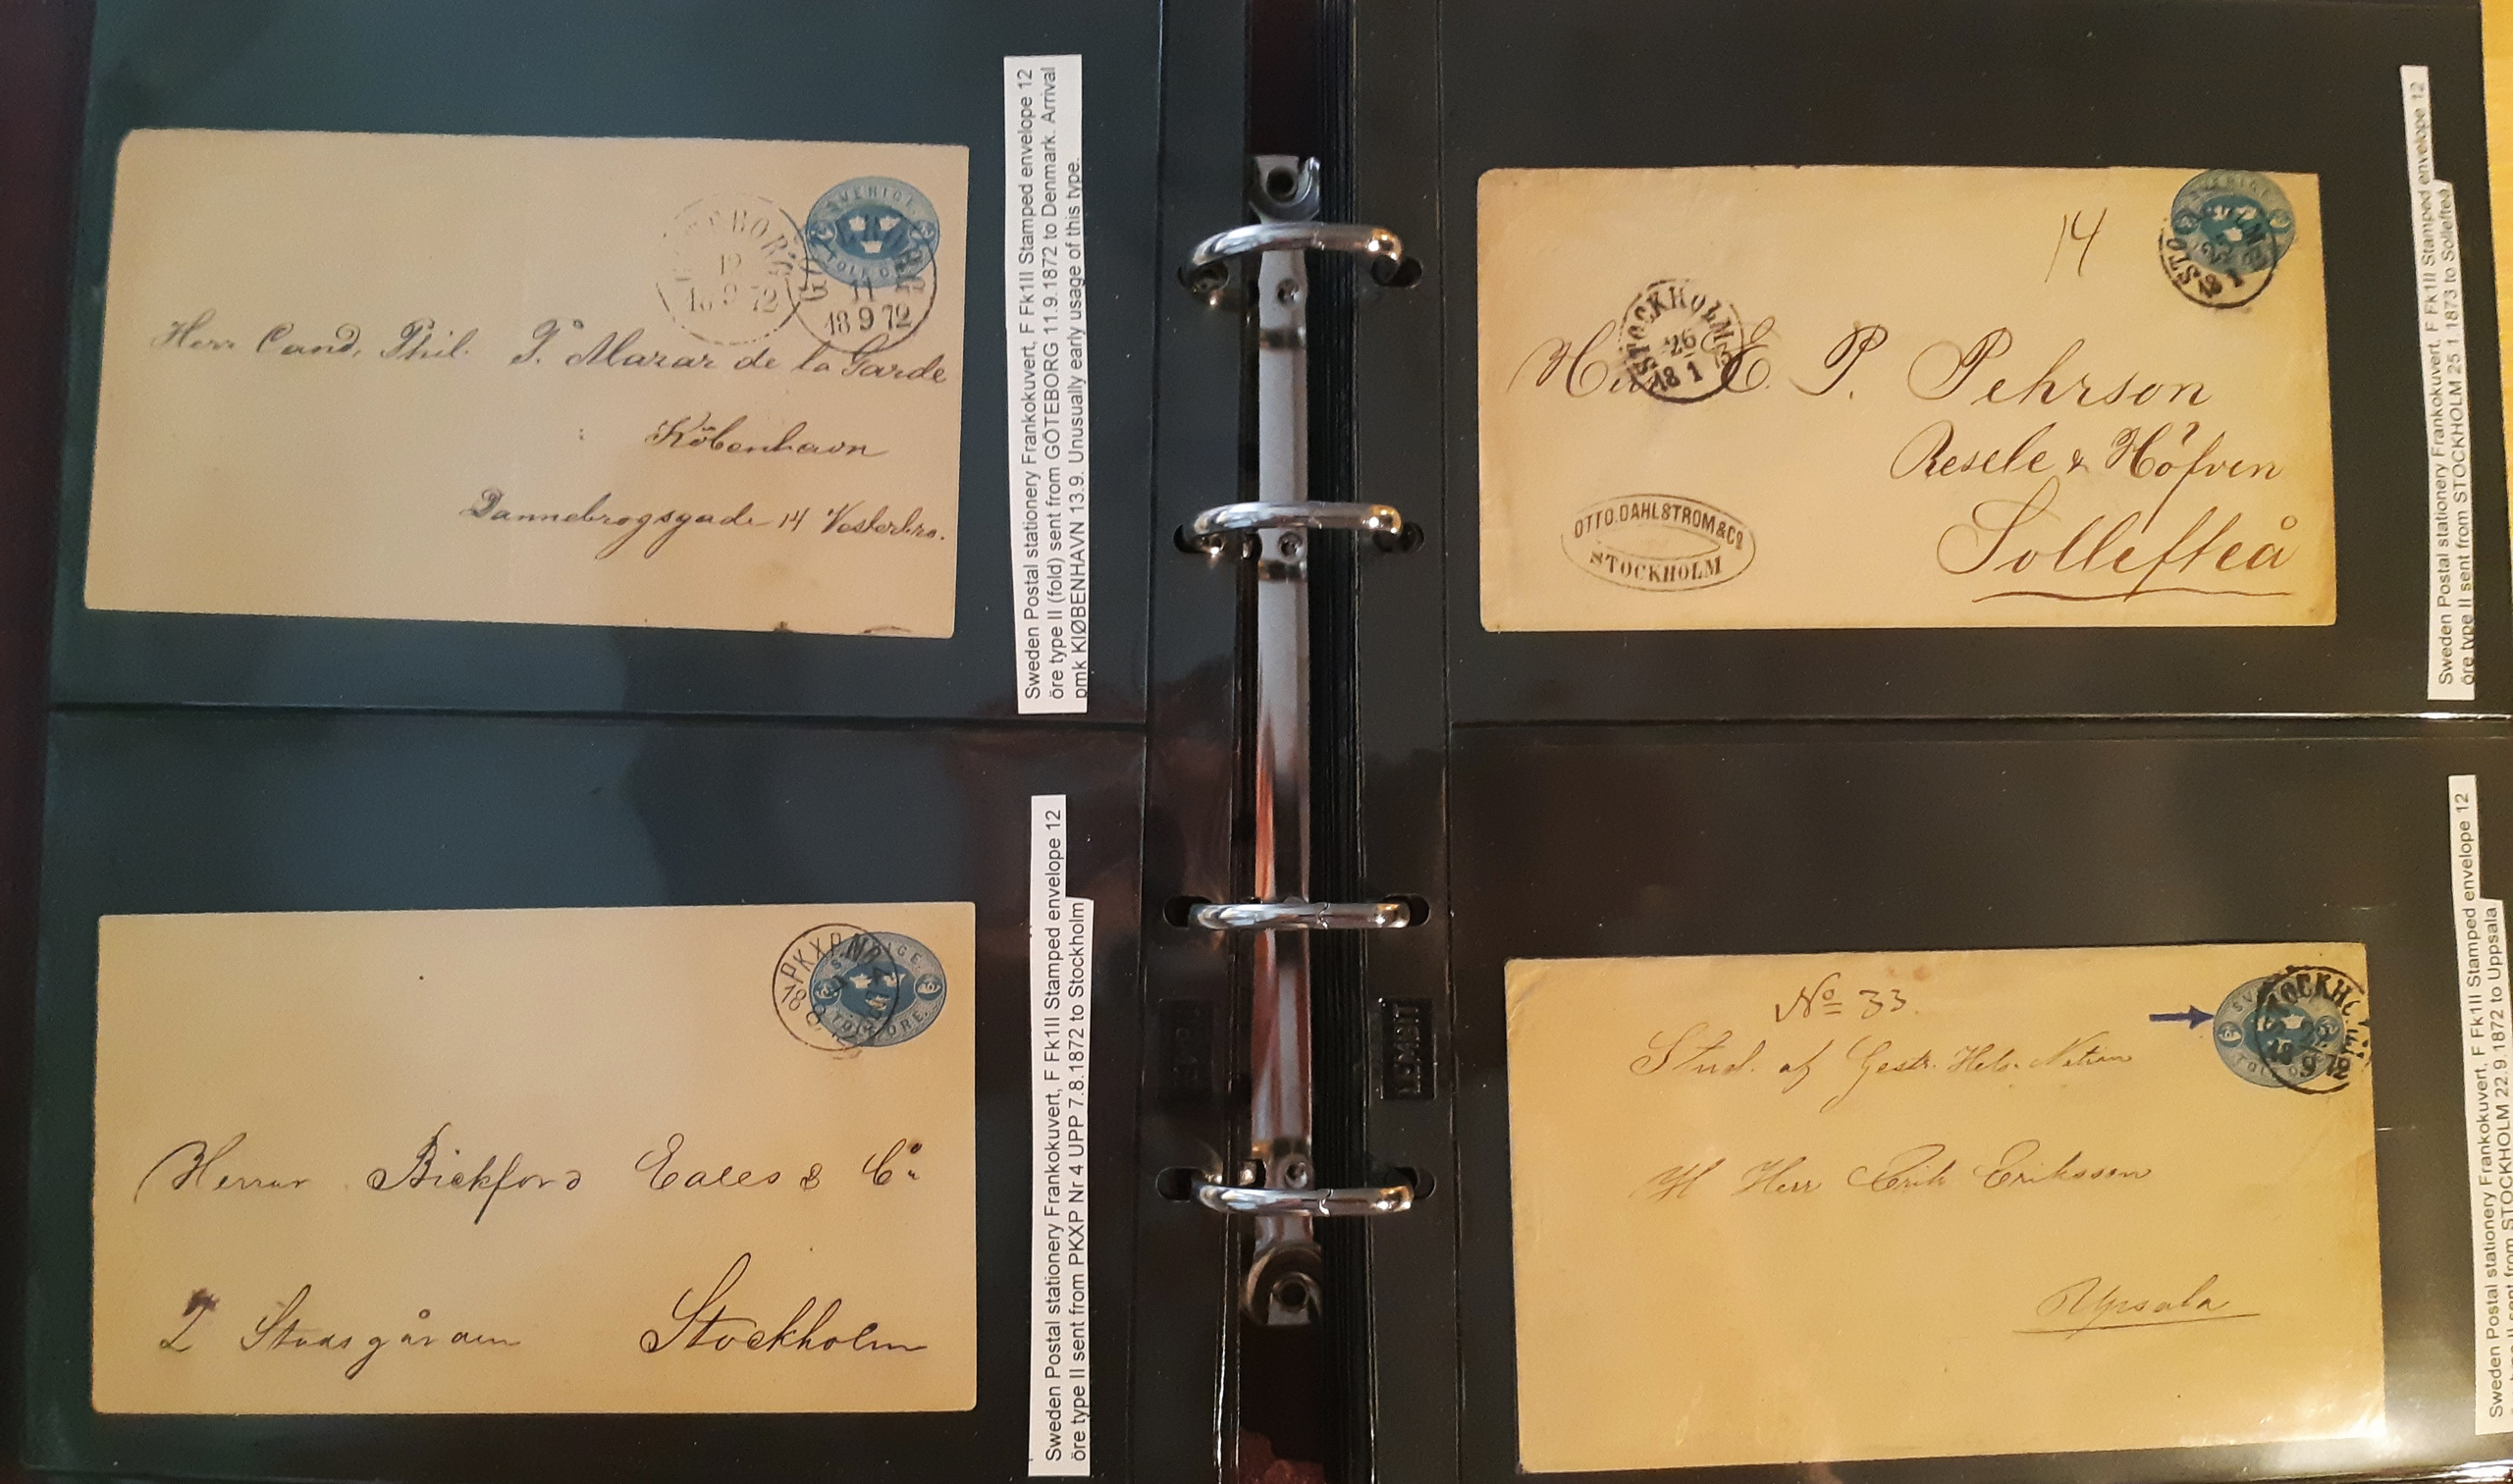 SVERIGE.
TOLF ÖRE
GÖTEBORG
12
18 9 72
11
18 9 72
Herr Cand. Phil. P. Mazar de la Garde
Köbenhavn
Dannebrogsgade 14 Vesterbro.
Sweden Postal stationery Frankokuvert, F Fk1II Stamped envelope 12
öre type II (fold) sent from GÖTEBORG 11.9.1872 to Denmark. Arrival
pmk KIØBENHAVN 13.9. Unusually early usage of this type.
PKXP.NR 4 UPP
SVERIGE.
TOLF ÖRE.
Herrar Bickford Eales & Co
2 Stadsgården Stockholm
Sweden Postal stationery Frankokuvert, F Fk1II Stamped envelope 12
öre type II sent from PKXP Nr 4 UPP 7.8.1872 to Stockholm
SVERIGE
STOCKHOLM
25
18 1
14
STOCKHOLM
26
18 1
E. P. Pehrson
Resele & Höfven
Sollefteå
OTTO.DAHLSTRÖM&Co
STOCKHOLM
Sweden Postal stationery Frankokuvert, F Fk1II Stamped envelope 12
öre type II sent from STOCKHOLM 25.1.1873 to Sollefteå
LOMBIT
STOCKHOLM
18 9 72
No 33
Stud. af Gestr. Hels. Nation
H Herr Erik Eriksson
Upsala
Sweden Postal stationery Frankokuvert, F Fk1II Stamped envelope 12
öre type II sent from STOCKHOLM 22.9.1872 to Uppsala